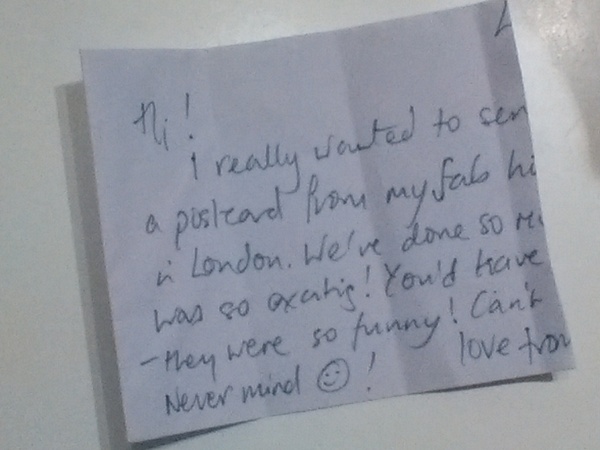 Hi!
I really wanted to sen
a postcard from my fab hi
in London. We've done so m
was so exciting! You'd have
- they were so funny! Can't
love from
Never mind ☺ !